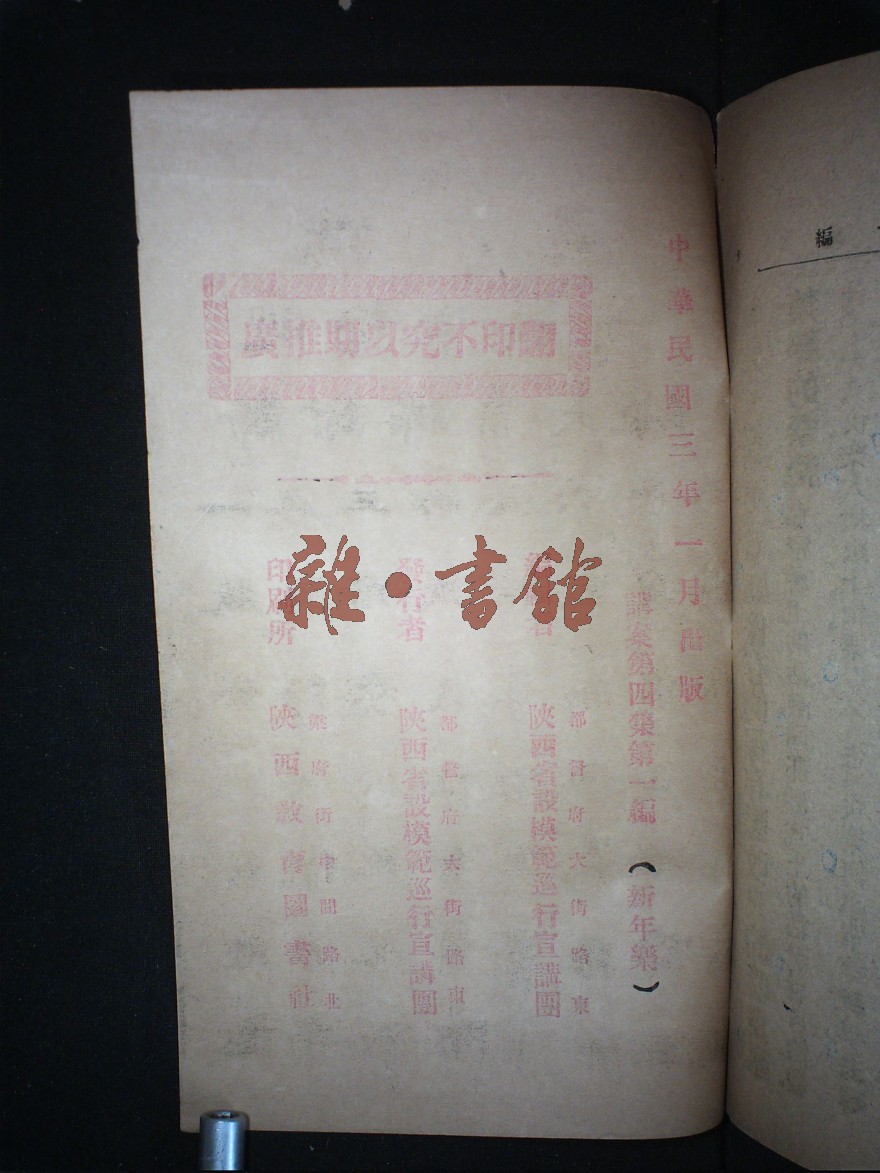 中華民國三年一月出版
講案第四集第一編 (新年樂)
翻印不究以期推廣
都督府大街路東
陝西省設模範巡行宣講團
發行者
都督府大街路東
陝西省設模範巡行宣講團
印刷所
梁府街中間路北
陝西教育圖書社
雜·書館
編